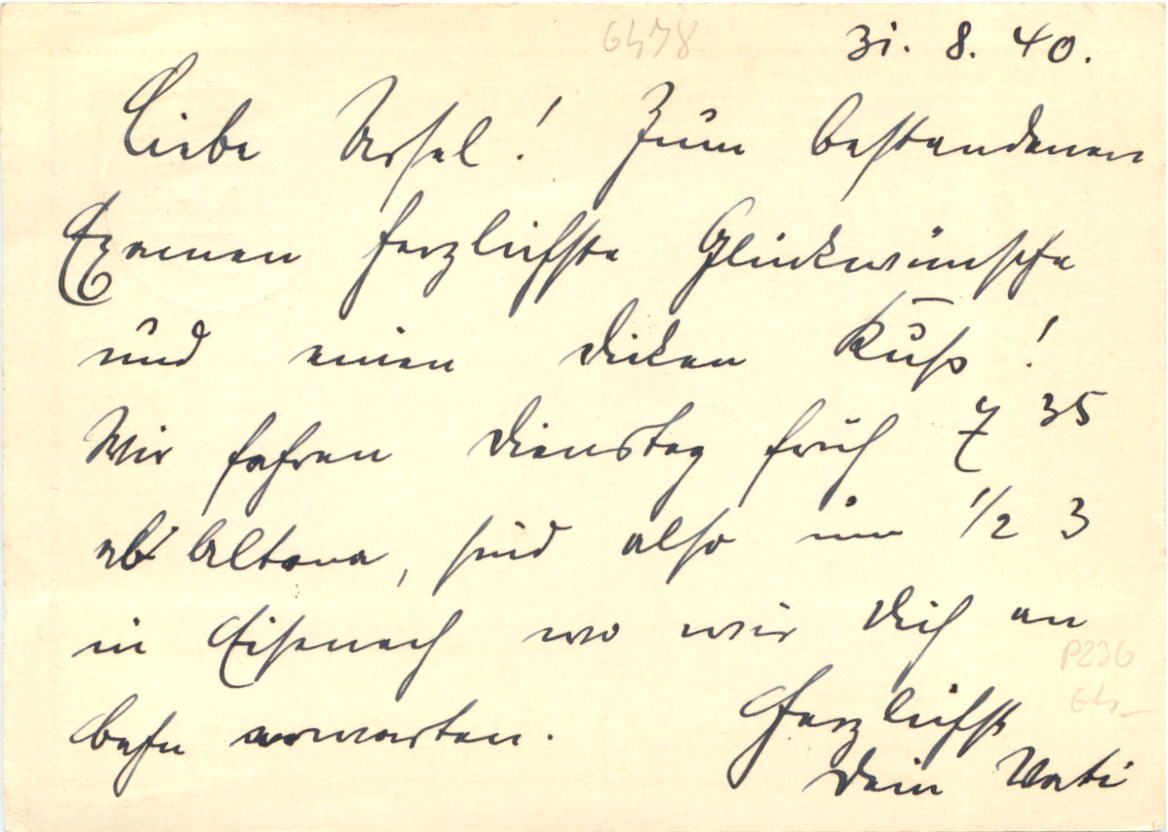 6478
31. 8. 40.
Liebe Ursel! Zum bestandenen
Examen herzlichste Glückwünsche
und einen dicken Kuß!
Wir fahren Dienstag früh 7 35
ab Altona, sind also um 1/2 3
in Eisenach wo wir Dich an
Bahn erwarten.
Herzlichst
Dein Vati
P236